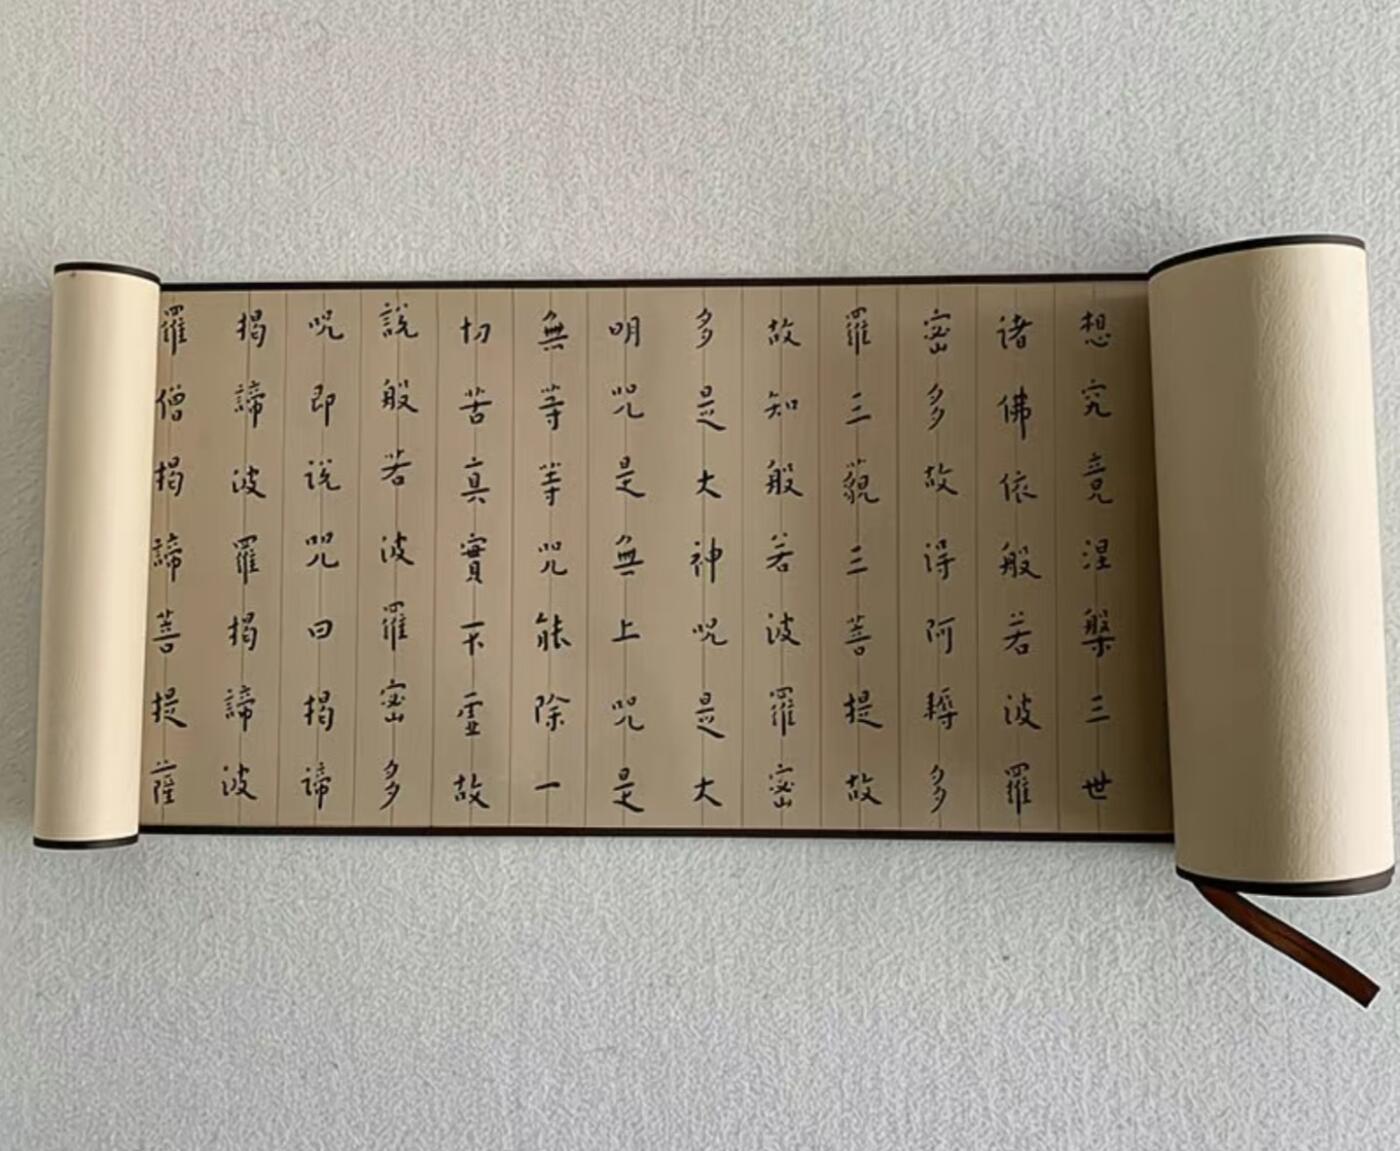 想究竟涅槃三世
諸佛依般若波羅
密多故得阿耨多
羅三藐三菩提故
故知般若波羅密
多是大神咒是大
明咒是無上咒是
無等等咒能除一
切苦真實不虛故
說般若波羅密多
咒即說咒曰揭諦
揭諦波羅揭諦波
羅僧揭諦菩提薩